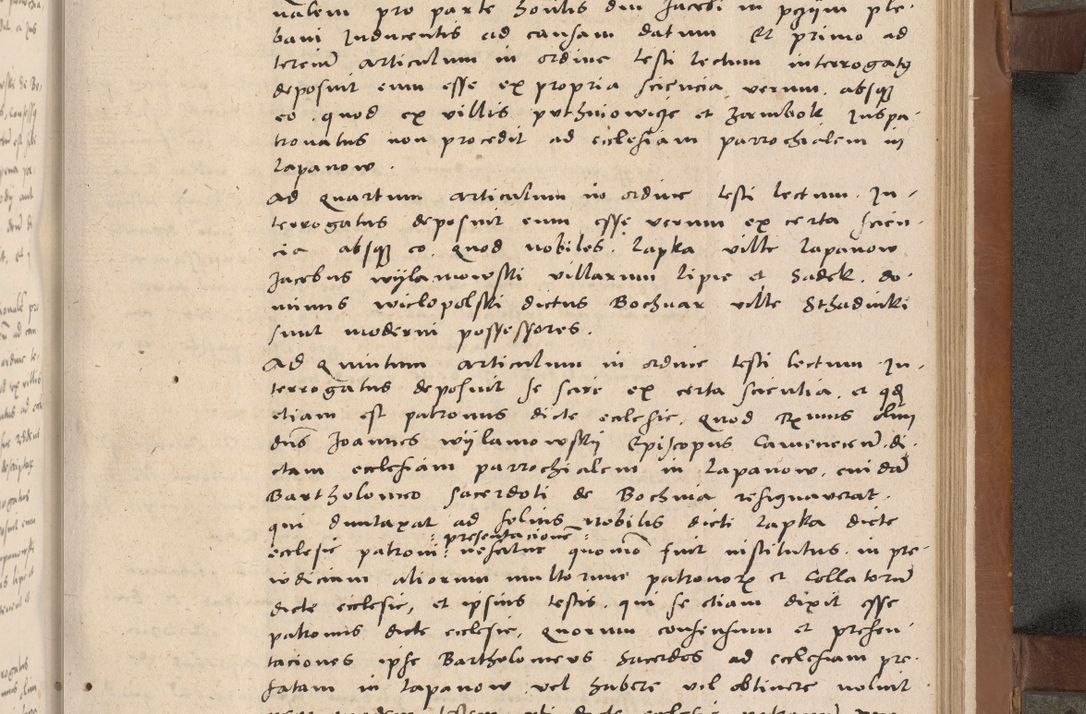 nalem pro parte honlis dni Jacobi in pgijm ple-
bani Inducentis ad causam datum Et primo ad
tercium articulum in ordine testi lectum interrogatg
deposuit eum esse ex propria sciencia verum, absqz
eo quod ex villis puthniowicze et Zambok Juspa-
tronatus non procedit ad ecclesiam parrochialem in
Lapanow.
Ad quartum articulum in ordine testi lectum. In-
terrogatus deposuit eum esse verum ex certa scien-
cia absqz eo, quod nobiles. Lapka ville Lapanow
Jacobus wylamowski villarum Lipie et Sadek. do-
minus wielopolski dictus Bochnar ville Sthadniki
sunt moderni possessores.
Ad quintum articulum in ordine testi lectum In-
terrogatus deposuit se scire ex certa scientia, et qd
etiam est patronus dicte ecclesie, quod Rmus olim
dns Joannes wylamowskij Episcopus Camenecen di-
ctam ecclesiam parrochialem in Lapanow, cuidam
Bartholomeo sacerdoti de Bochnia resignaverat.
qui duntaxat ad solius nobilis dicti Lapka dicte
presentacione
ecclesie patroni nescitur quomo fuit institutus in pre-
iudicium aliorum multorum patronorum et Collatorum
dicte ecclesie, et ipsius testis, qui se etiam dixit esse
patronus dicte ecclesie, quorum consensum et presen-
taciones ipse Bartholomeus Sacerdos ad ecclesiam pre-
fatam in Lapanow vel habere vel obtinere noluit